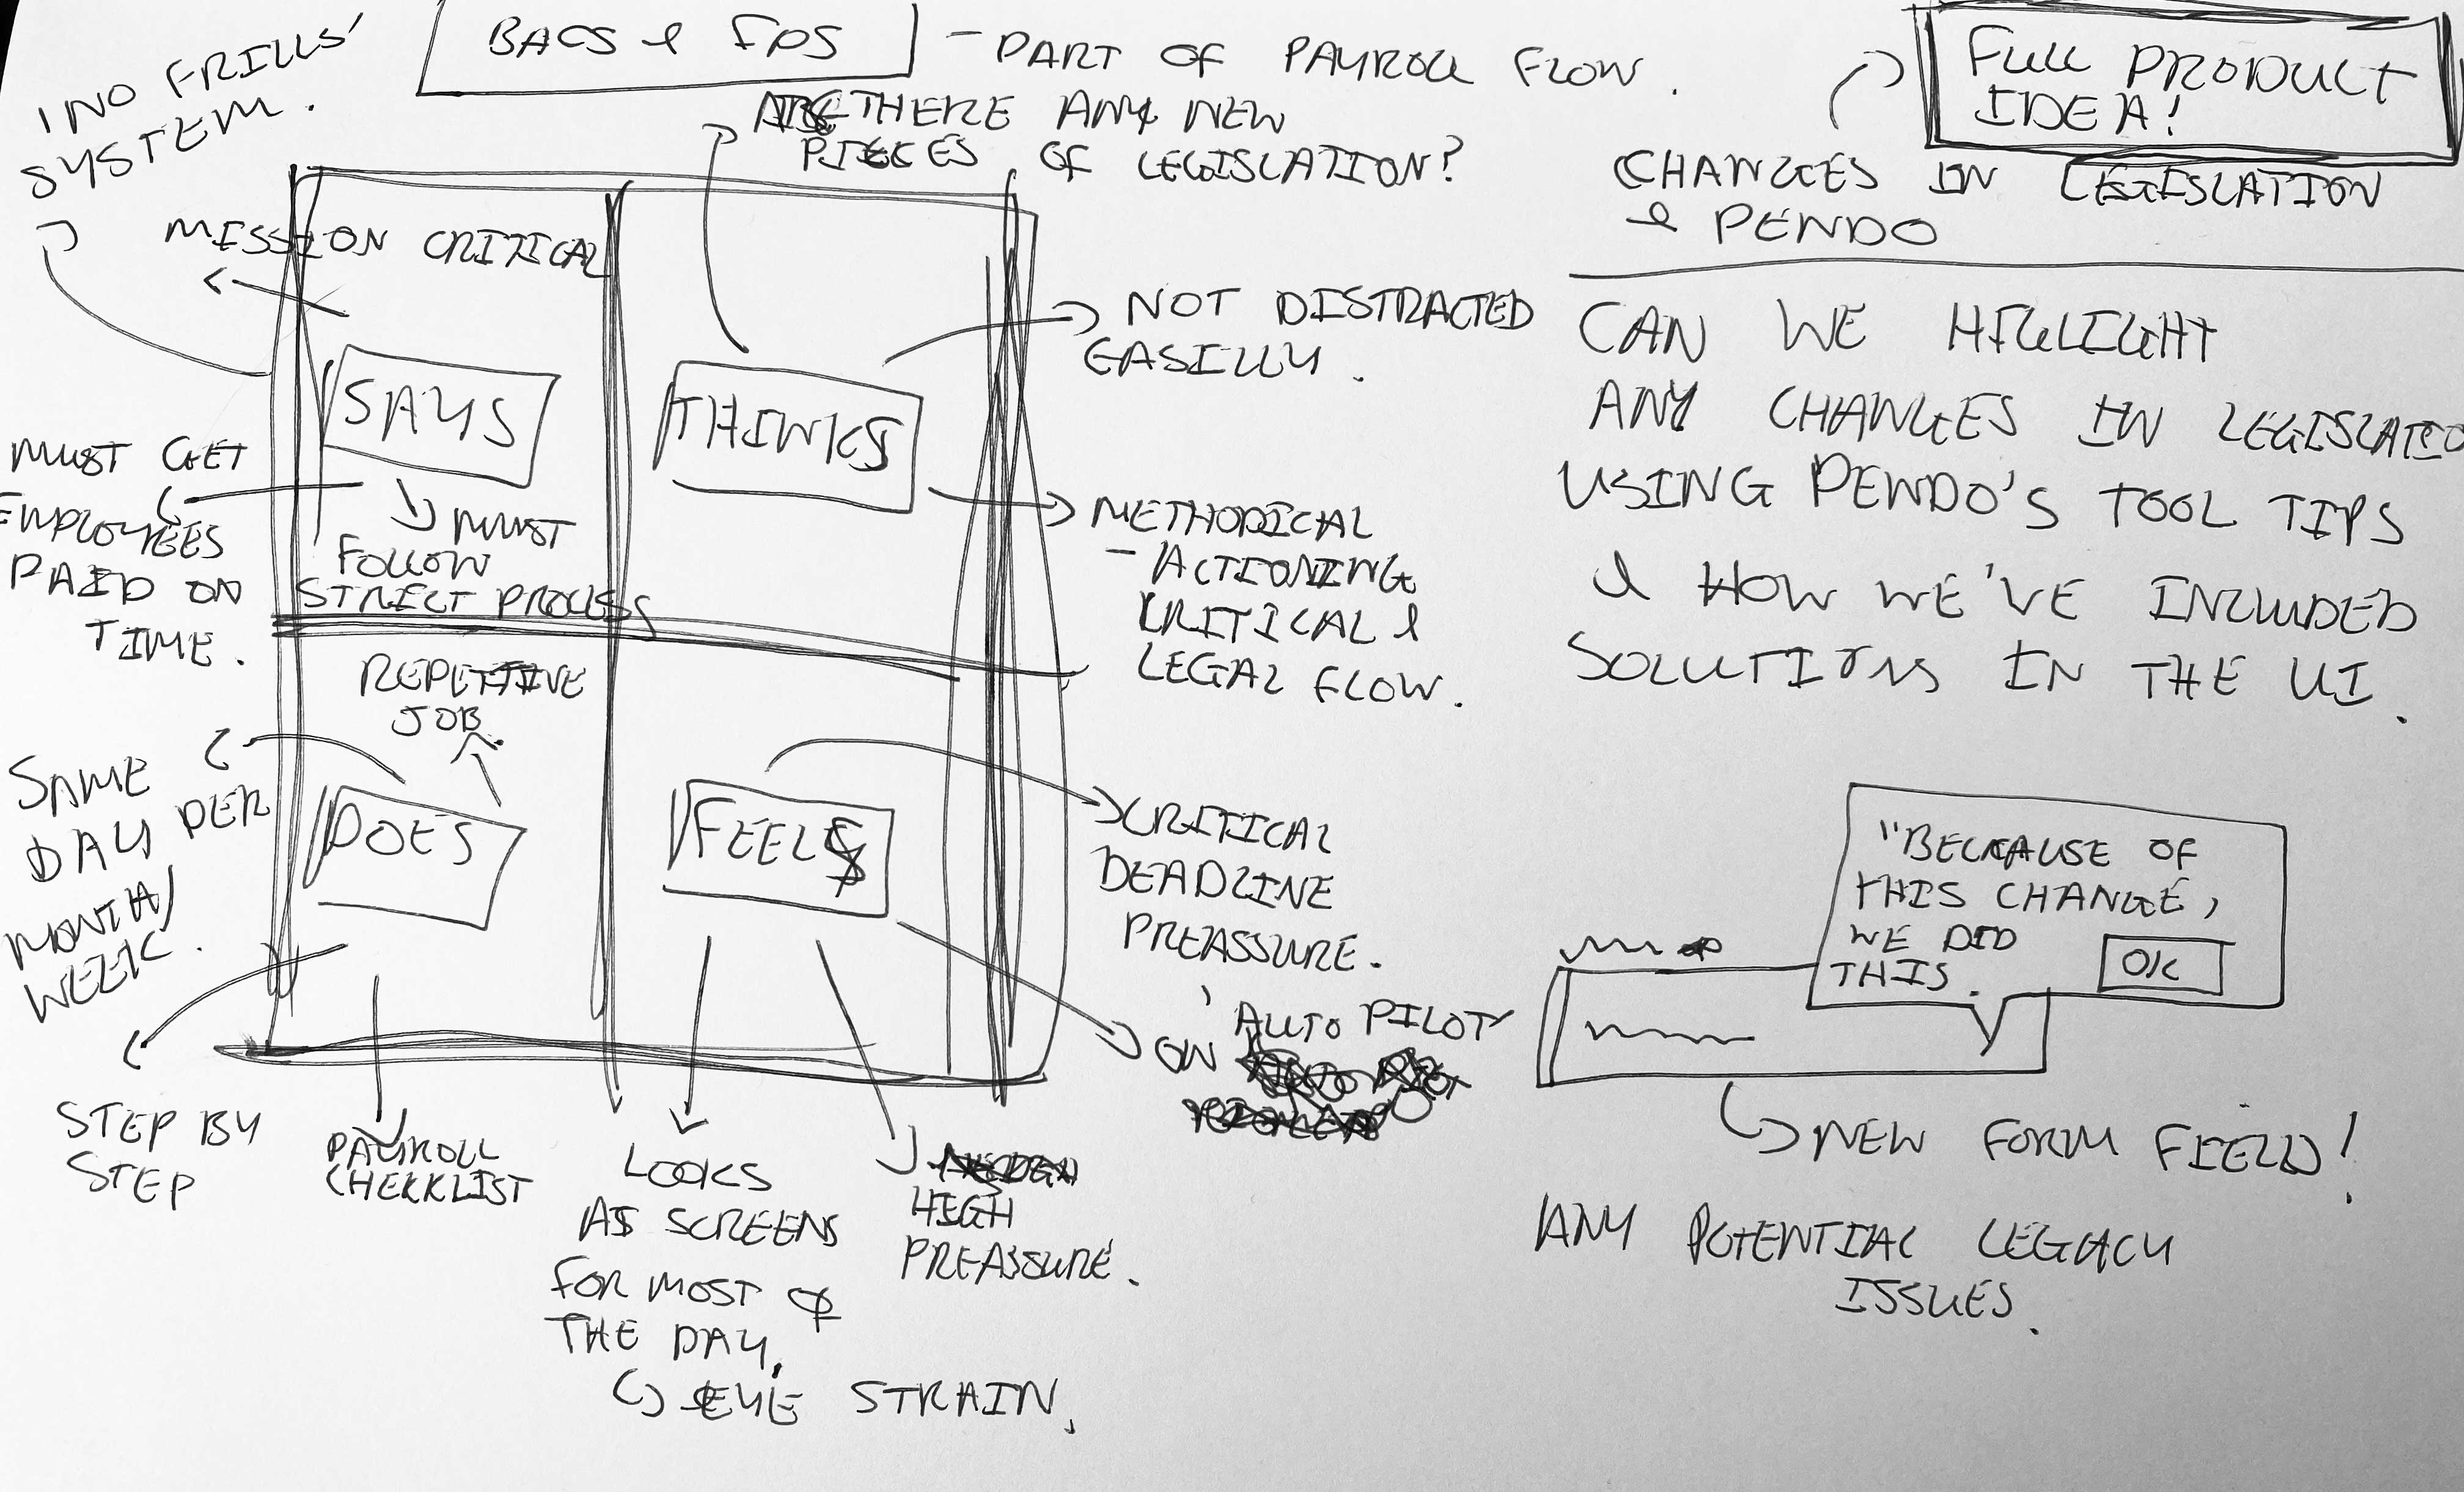 BACS & FPS
- PART OF PAYROLL FLOW.
'NO FRILLS'
SYSTEM.
ARE THERE ANY NEW
PIECES OF LEGISLATION?
MISSION CRITICAL
SAYS
MUST GET
EMPLOYEES
PAID ON
TIME.
MUST
FOLLOW
STRICT PROCESS
THINKS
NOT DISTRACTED
EASILLY.
METHODICAL
- ACTIONING
CRITICAL &
LEGAL FLOW.
REPETITIVE
JOB.
DOES
SAME
DAY PER
MONTH/
WEEK.
STEP BY
STEP
PAYROLL
CHECKLIST
FEELS
CRITICAL
DEADLINE
PREASSURE.
ON 'AUTO PILOT'
HIGH
PREASSURE.
LOOKS
AS SCREENS
FOR MOST OF
THE DAY.
EYE STRAIN.
FULL PRODUCT
IDEA!
CHANGES IN LEGISLATION
& PENDO
CAN WE HIGLIGHT
ANY CHANGES IN LEGISLATIO
USING PENDO'S TOOL TIPS
& HOW WE'VE INCLUDED
SOLUTIONS IN THE UI.
"BECAUSE OF
THIS CHANGE,
WE DID
THIS.
OK
NEW FORM FIELD!
ANY POTENTIAL LEGACY
ISSUES.